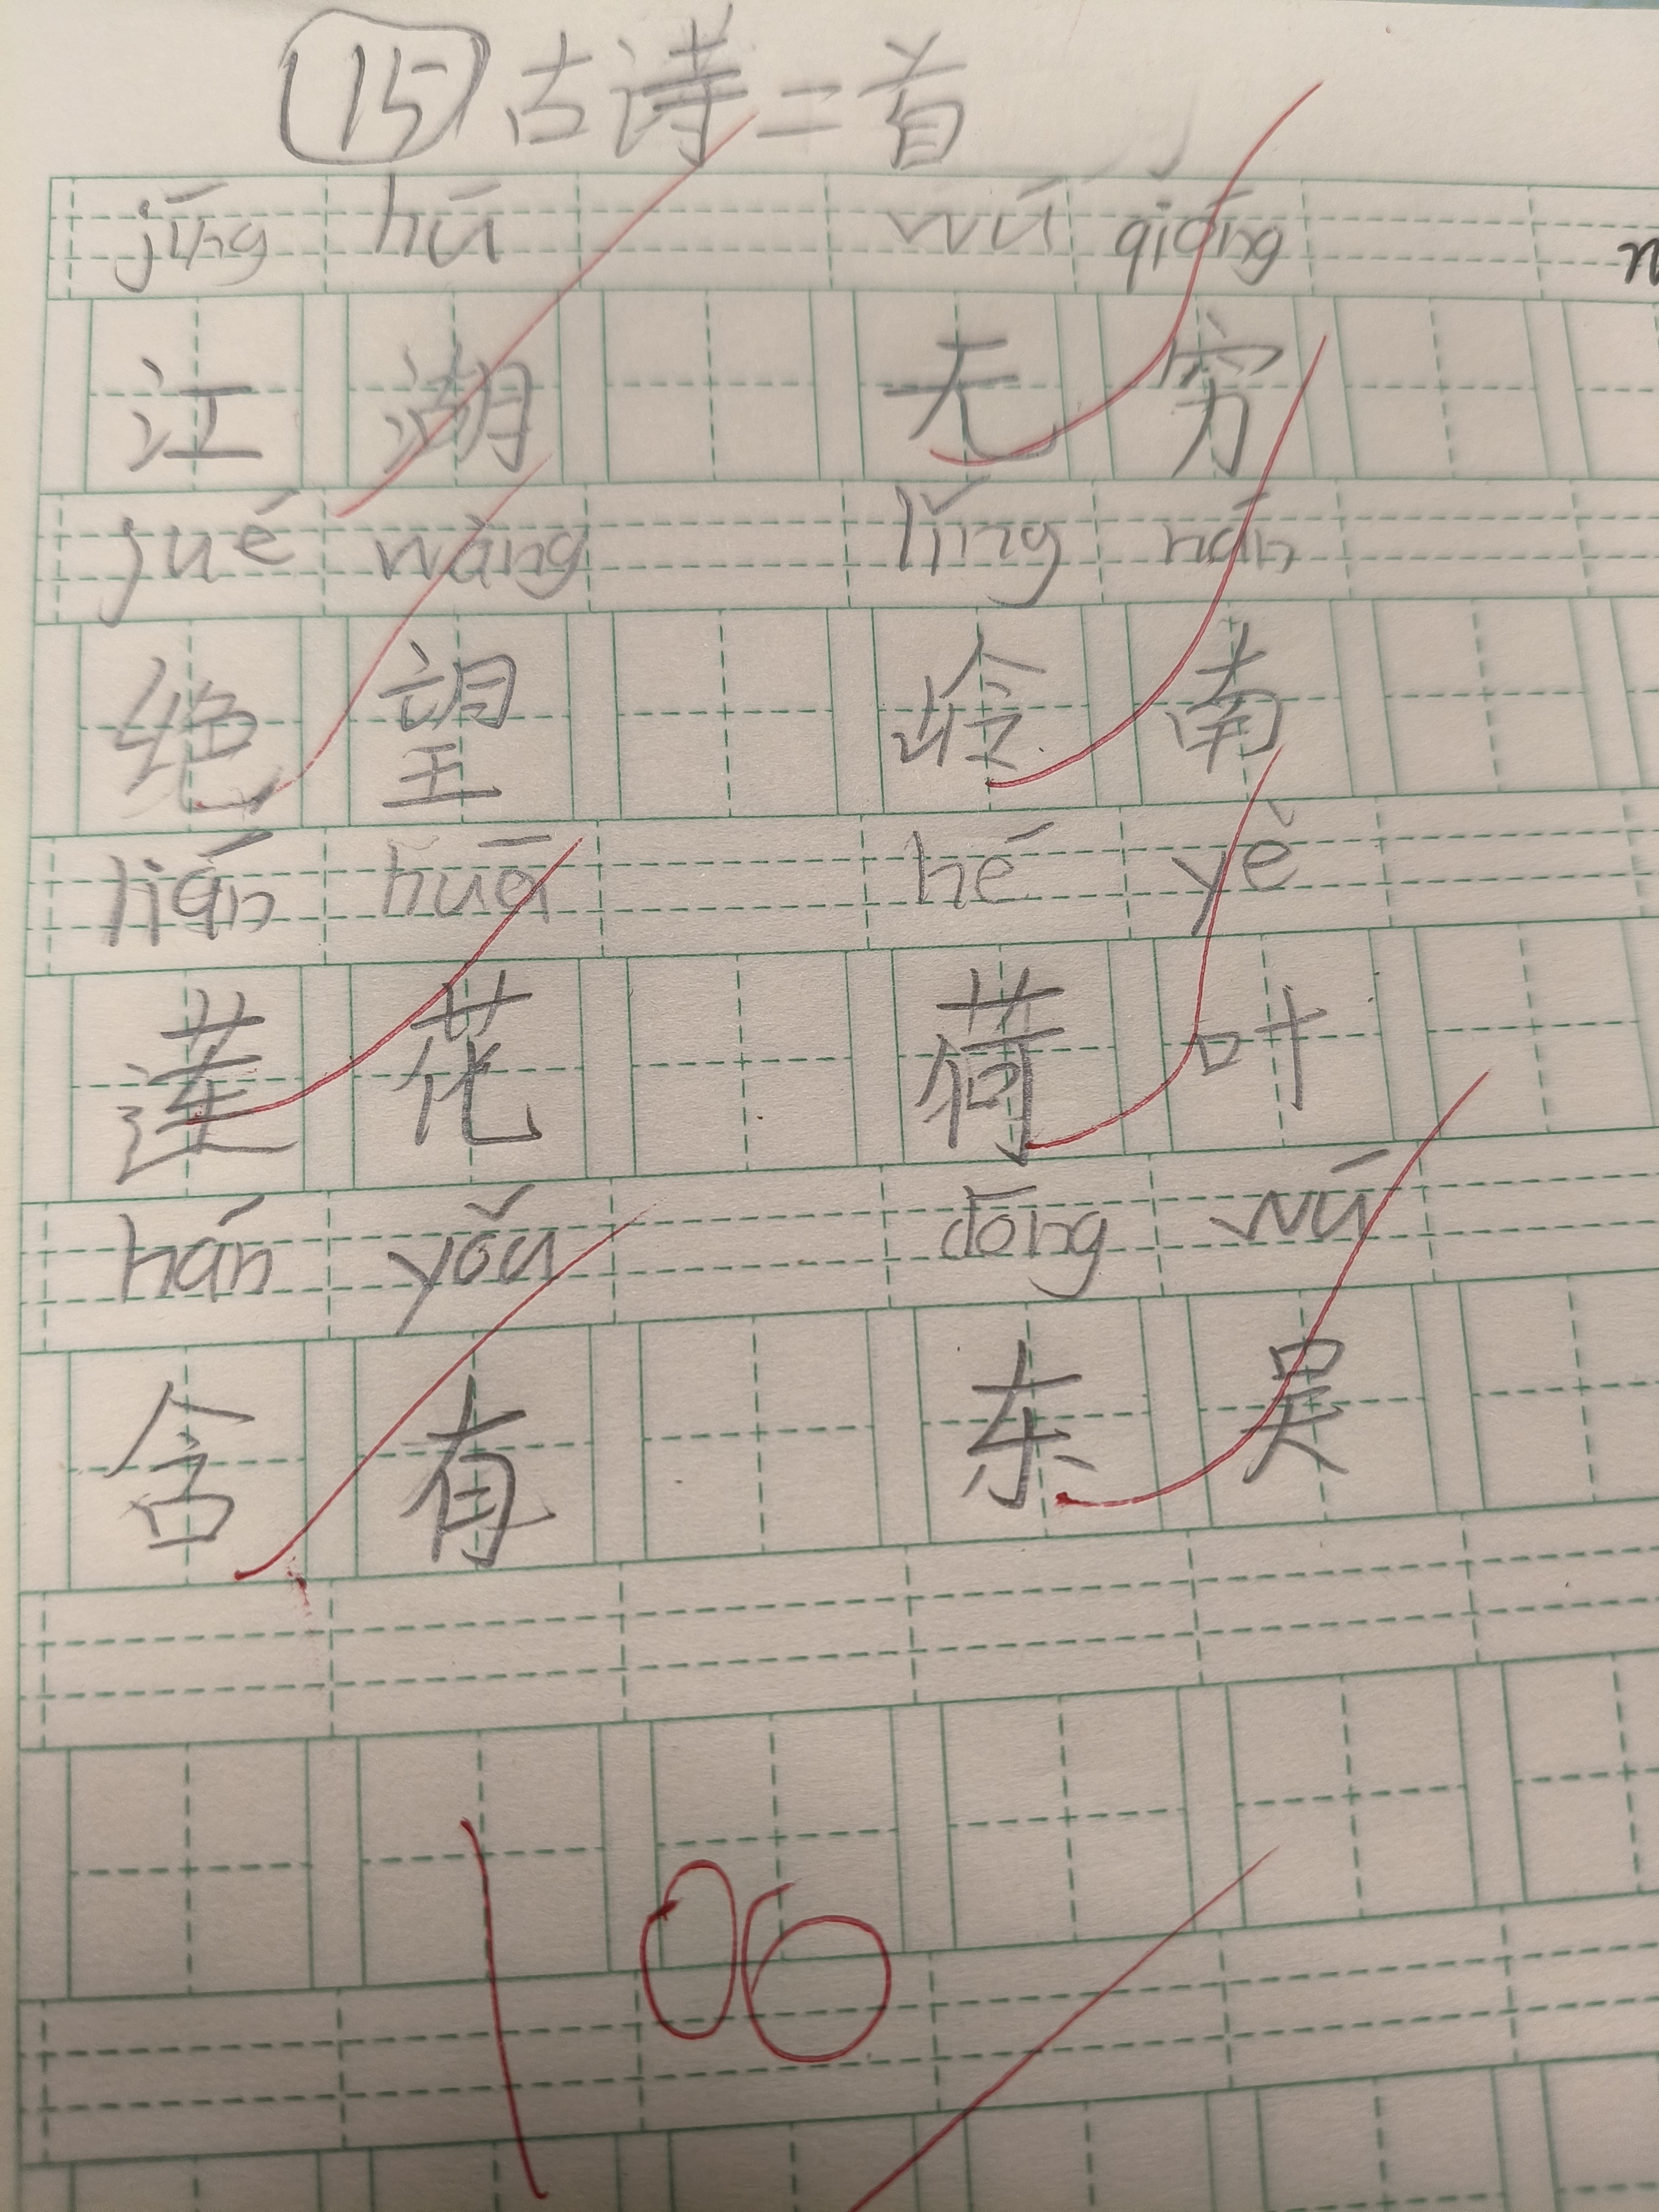 15 古诗二首
jīng hū wú qióng
江湖 无穷
jué wàng lǐng nán
绝望 岭南
lián huā hé yè
莲花 荷叶
hán yǒu dōng wú
含有 东吴
100